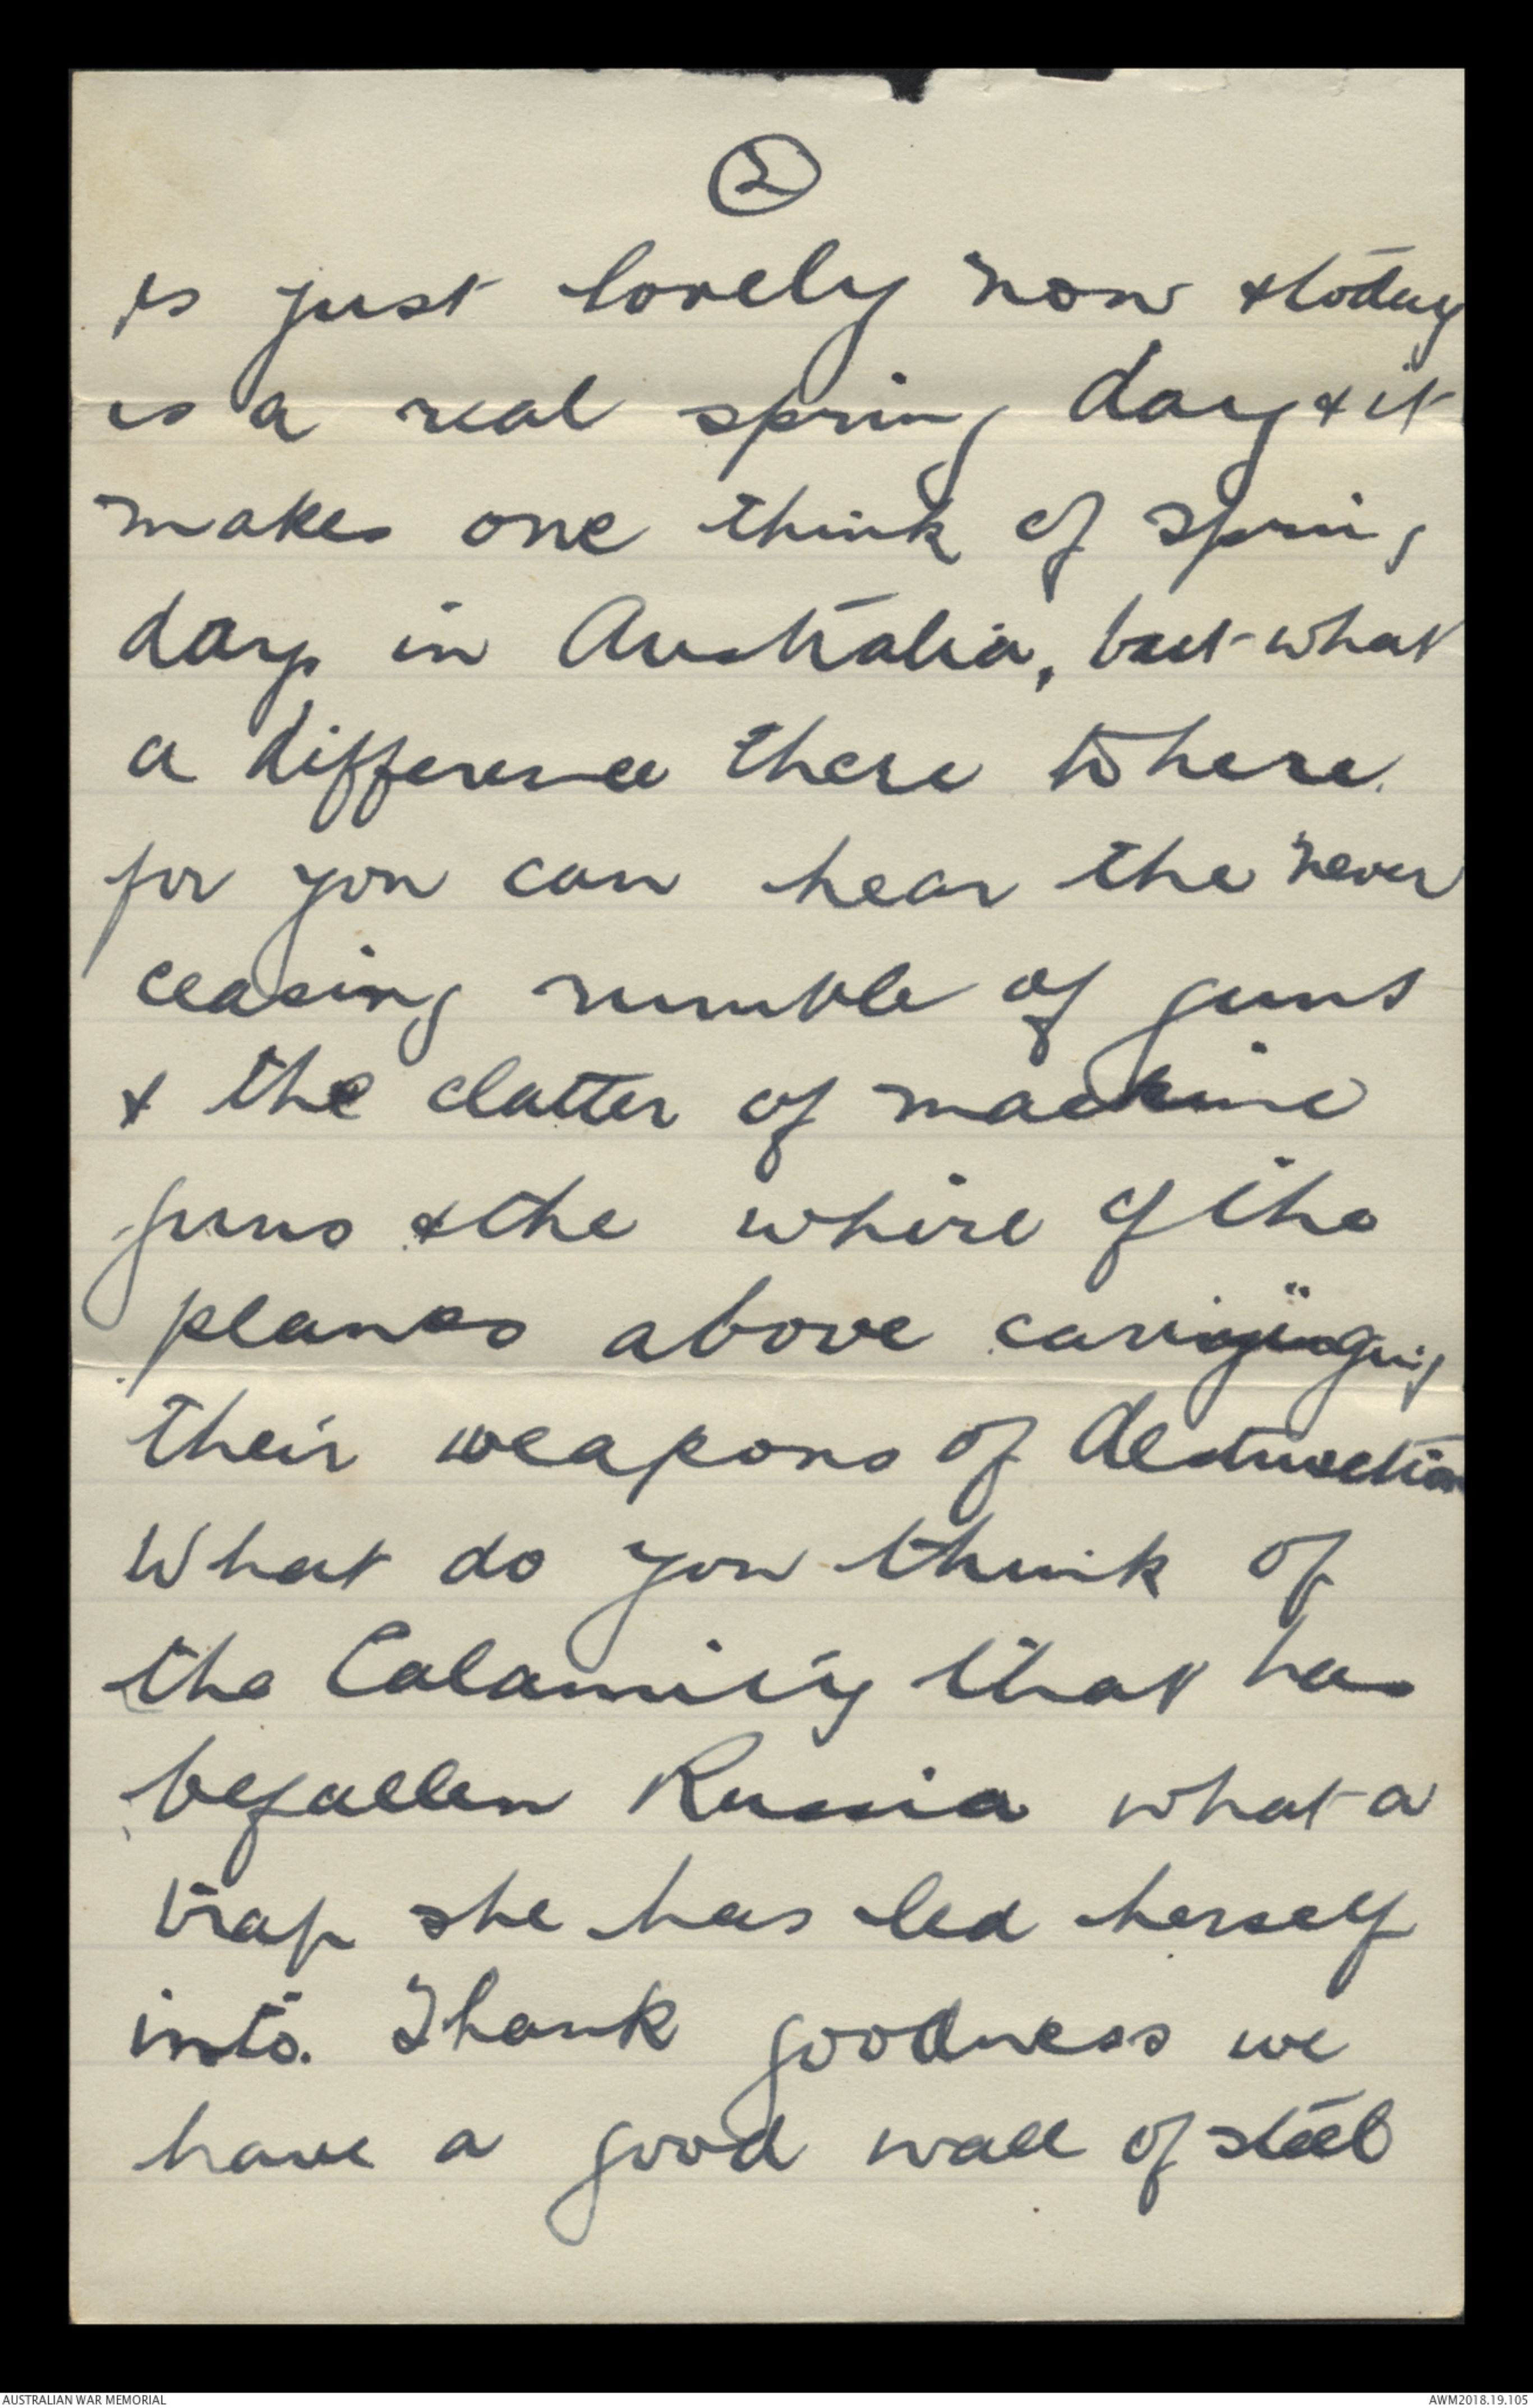 2
is just lovely now & today
is a real spring day & it
makes one think of spring
days in Australia, but what
a difference there to here.
for you can hear the never
ceasing rumble of guns
& the clatter of machine
guns & the whire of the
planes above
their weapons of destruction
What do you think of
the Calamity that has
befallen Russia what a
trap she has led herself
into. Thank goodness we
have a good wall of steel
AUSTRALIAN WAR MEMORIAL
AWM2018.19.105